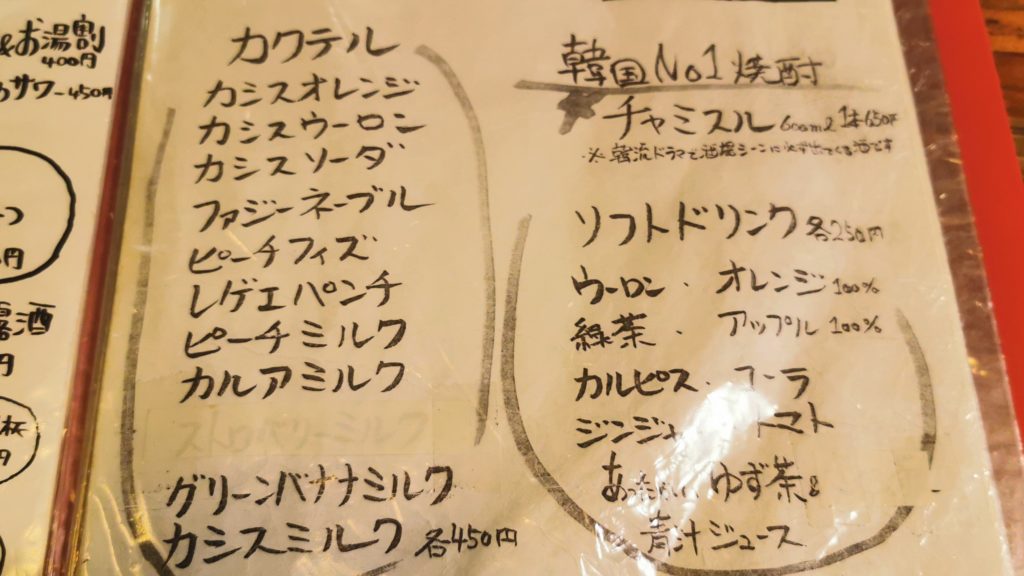 &お湯割
400円
サワー450円
円
酒
円
杯
カクテル
カシスオレンジ
カシスウーロン
カシスソーダ
ファジーネーブル
ピーチフィズ
レゲエパンチ
ピーチミルク
カルアミルク
ストロベリーミルク
グリーンバナナミルク
カシスミルク 各450円
韓国No1焼酎
チャミスル 600ml 1本650円
※韓流ドラマで酒場シーンに必ず出てくる酒です
ソフトドリンク 各250円
ウーロン・オレンジ100%
緑茶・アップル100%
カルピス・コーラ
ジンジャ トマト
あったかい ゆず茶&
青汁ジュース